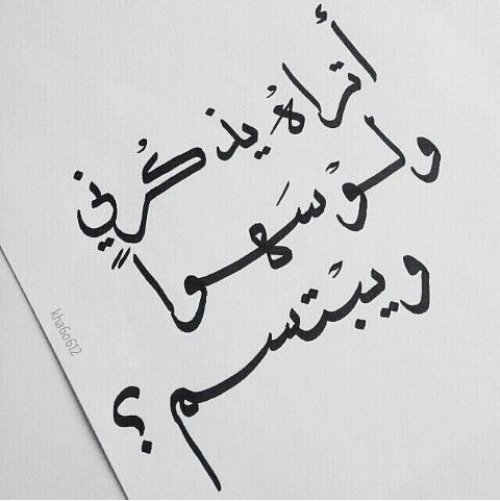 أتراهُ يذكُرني
ولوْ سَهواً
ويبْتسم ؟
kha6o612